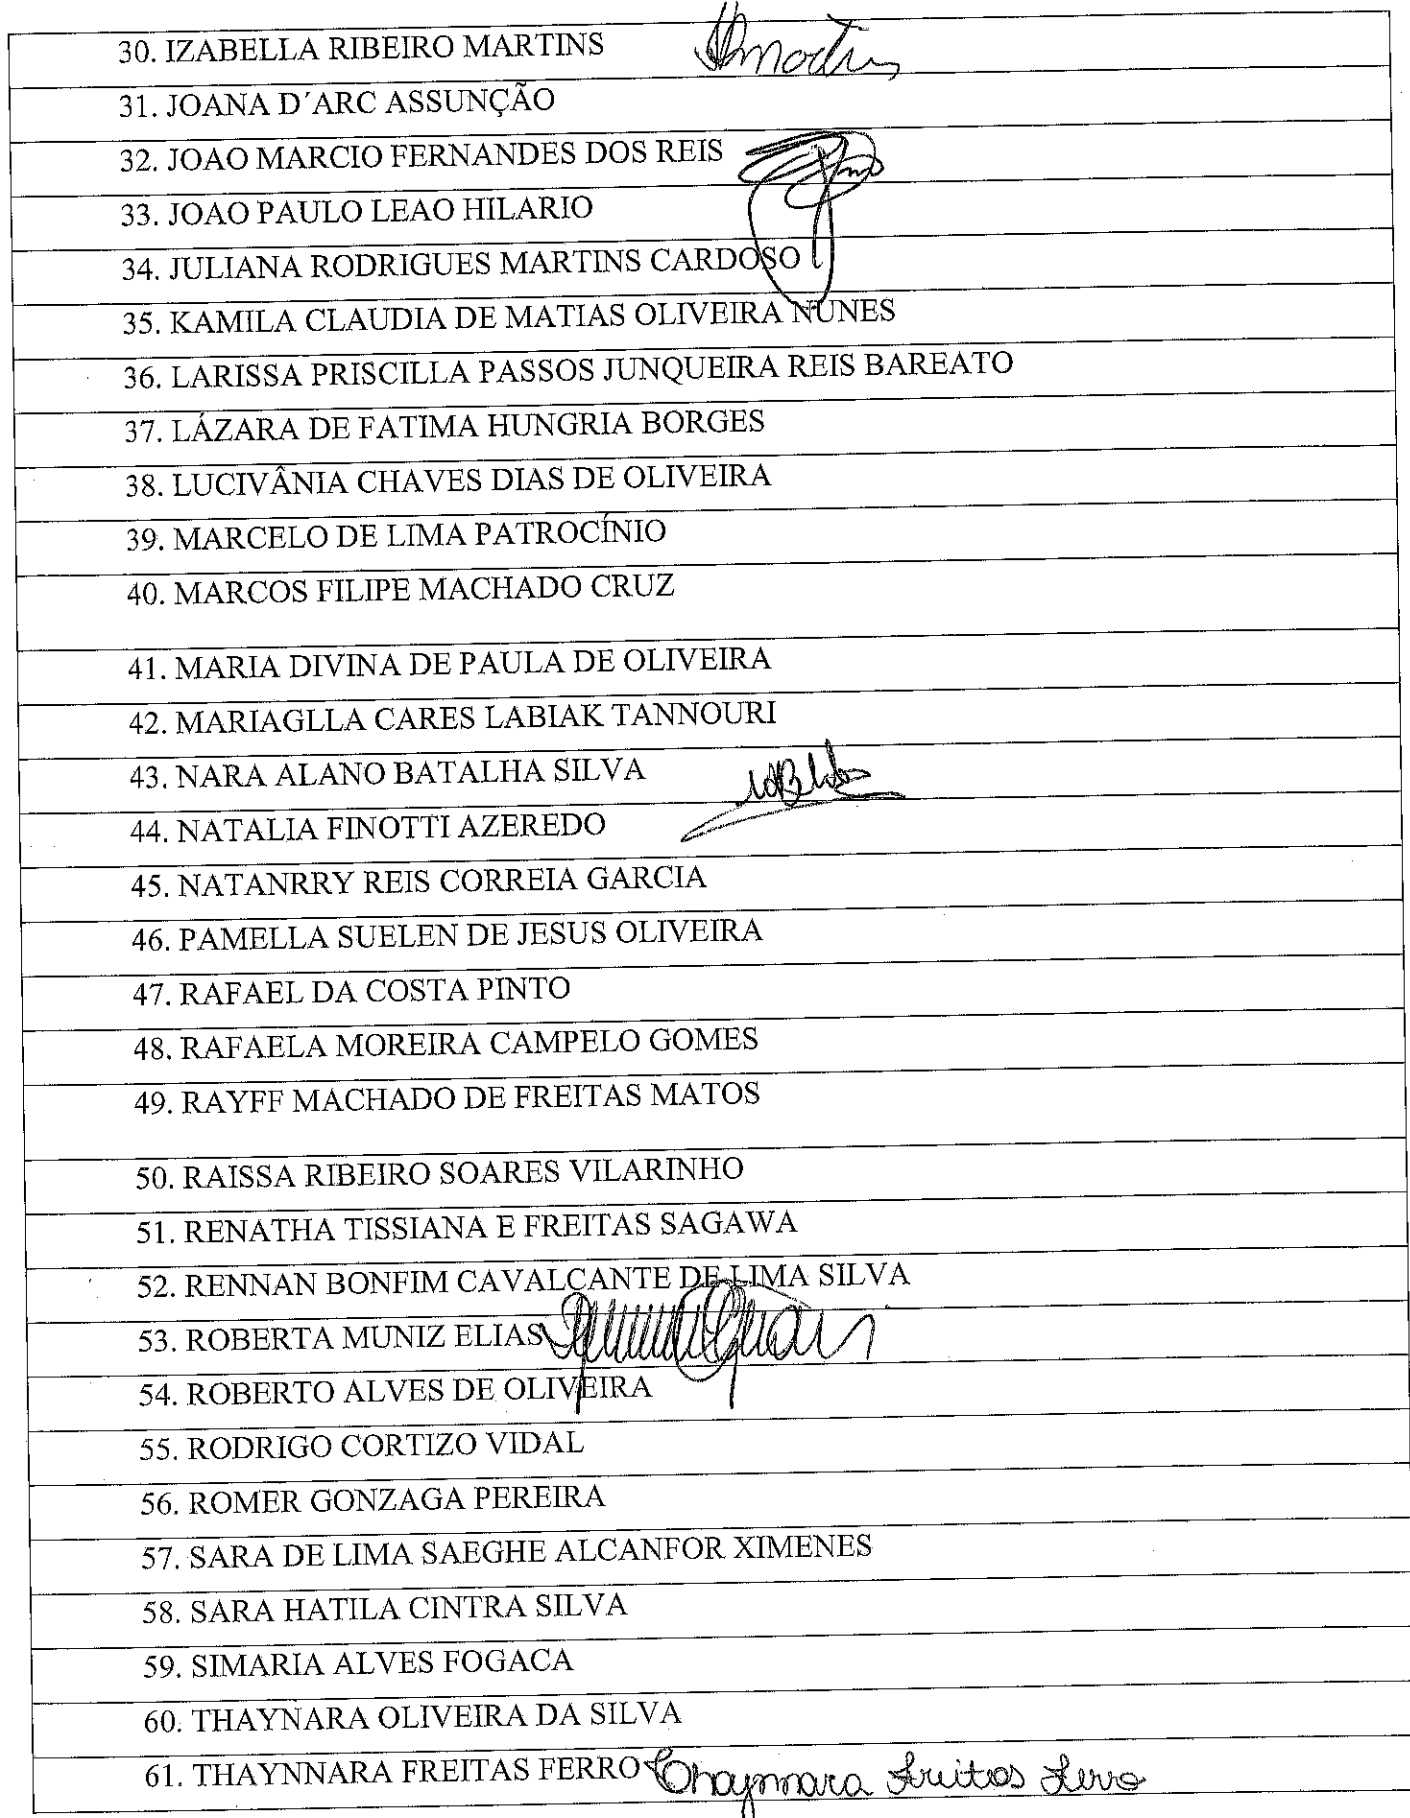 30. IZABELLA RIBEIRO MARTINS
31. JOANA D´ARC ASSUNÇÃO
32. JOAO MARCIO FERNANDES DOS REIS
33. JOAO PAULO LEAO HILARIO
34. JULIANA RODRIGUES MARTINS CARDOSO
35. KAMILA CLAUDIA DE MATIAS OLIVEIRA NUNES
36. LARISSA PRISCILLA PASSOS JUNQUEIRA REIS BAREATO
37. LÁZARA DE FATIMA HUNGRIA BORGES
38. LUCIVÂNIA CHAVES DIAS DE OLIVEIRA
39. MARCELO DE LIMA PATROCÍNIO
40. MARCOS FILIPE MACHADO CRUZ
41. MARIA DIVINA DE PAULA DE OLIVEIRA
42. MARIAGLLA CARES LABIAK TANNOURI
43. NARA ALANO BATALHA SILVA
44. NATALIA FINOTTI AZEREDO
45. NATANRRY REIS CORREIA GARCIA
46. PAMELLA SUELEN DE JESUS OLIVEIRA
47. RAFAEL DA COSTA PINTO
48. RAFAELA MOREIRA CAMPELO GOMES
49. RAYFF MACHADO DE FREITAS MATOS
50. RAISSA RIBEIRO SOARES VILARINHO
51. RENATHA TISSIANA E FREITAS SAGAWA
52. RENNAN BONFIM CAVALCANTE DE LIMA SILVA
53. ROBERTA MUNIZ ELIAS
54. ROBERTO ALVES DE OLIVEIRA
55. RODRIGO CORTIZO VIDAL
56. ROMER GONZAGA PEREIRA
57. SARA DE LIMA SAEGHE ALCANFOR XIMENES
58. SARA HATILA CINTRA SILVA
59. SIMARIA ALVES FOGACA
60. THAYNARA OLIVEIRA DA SILVA
61. THAYNNARA FREITAS FERRO Thaynnara Freitas Ferro